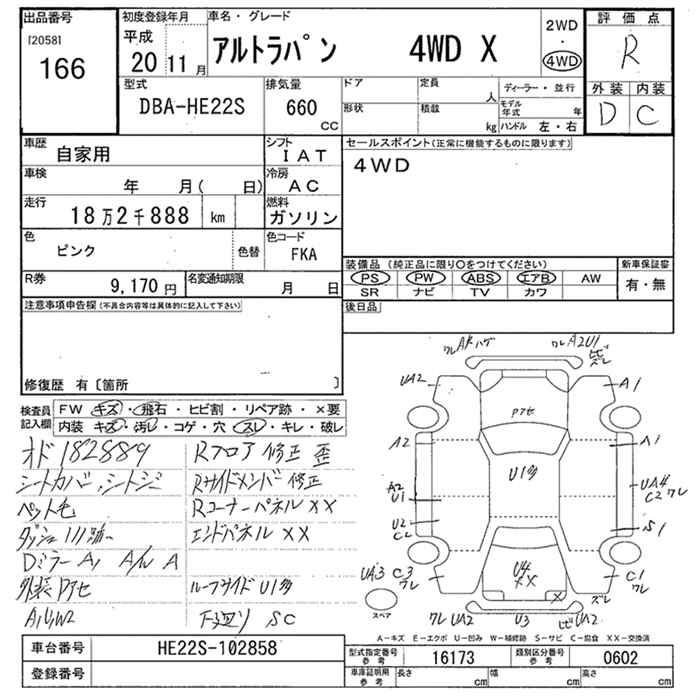 出品番号
[2058]
166
初度登録年月
平成
20 11 月
車名・グレード
アルトラパン 4WD X
2WD
・
4WD
評価点
R
外装 内装
D C
型式
DBA-HE22S
排気量
660
CC
ドア
形状
定員
人
積載
kg
ディーラー・並行
モデル年式 年
ハンドル 左・右
車歴
自家用
シフト
IAT
車検
年 月( 日)
冷房
AC
走行
18万2千888 km
燃料
ガソリン
色
ピンク
色替
色コード
FKA
R券
9,170 円
名変通知期限
月 日
セールスポイント(正常に機能するものに限ります)
4WD
装備品 (純正品に限り○をつけてください)
PS PW ABS エアB AW
SR ナビ TV カワ
新車保証書
有・無
後日品
注意事項申告欄(不具合内容等は具体的に記入して下さい)
修復歴 有〔箇所 〕
検査員記入欄
FW キズ・飛石・ヒビ割・リペア跡・×要
内装 キズ・汚レ・コゲ・穴・スレ・キレ・破レ
オド182889
シートカバー、シートシミ
ペット毛
Dミラー A1 A/W A
外装アセ
Rフロア 修正 歪
Rサイドメンバー 修正
Rコーナーパネル ××
エンドパネル ××
ルーフサイド U1多
下廻り SC
クレ AR ハゲ
クレ A2U1
ズレ
UA2
A1
アセ
A2
A1
U1多
A2
U1
UA4
C2 クレ
U2
C2
S1
UA3 C3
クレ
U4
××
×
C1
クレ
ズレ
クレ UA2
U3
UA2
スペア
A-キズ E-エクボ U-凹み W-補修跡 S-サビ C-腐食 XX-交換済
車台番号
HE22S-102858
登録番号
型式指定番号 参考
16173
類別区分番号 参考
0602
車庫証明用 参考
長さ cm
幅 cm
高さ cm